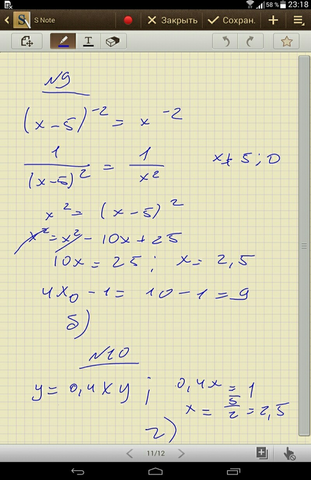 58 % 23:18
S Note
Закрыть
Сохран.
T
N9
(x-5)^-2 = x^-2
1/(x-5)^2 = 1/x^2 x≠5;0
x^2 = (x-5)^2
x^2 = x^2 - 10x + 25
10x = 25; x = 2,5
4x₀ - 1 = 10 - 1 = 9
б)
N10
y = 0,4xy; 0,4x = 1
x = 5/2 = 2,5
г)
11/12